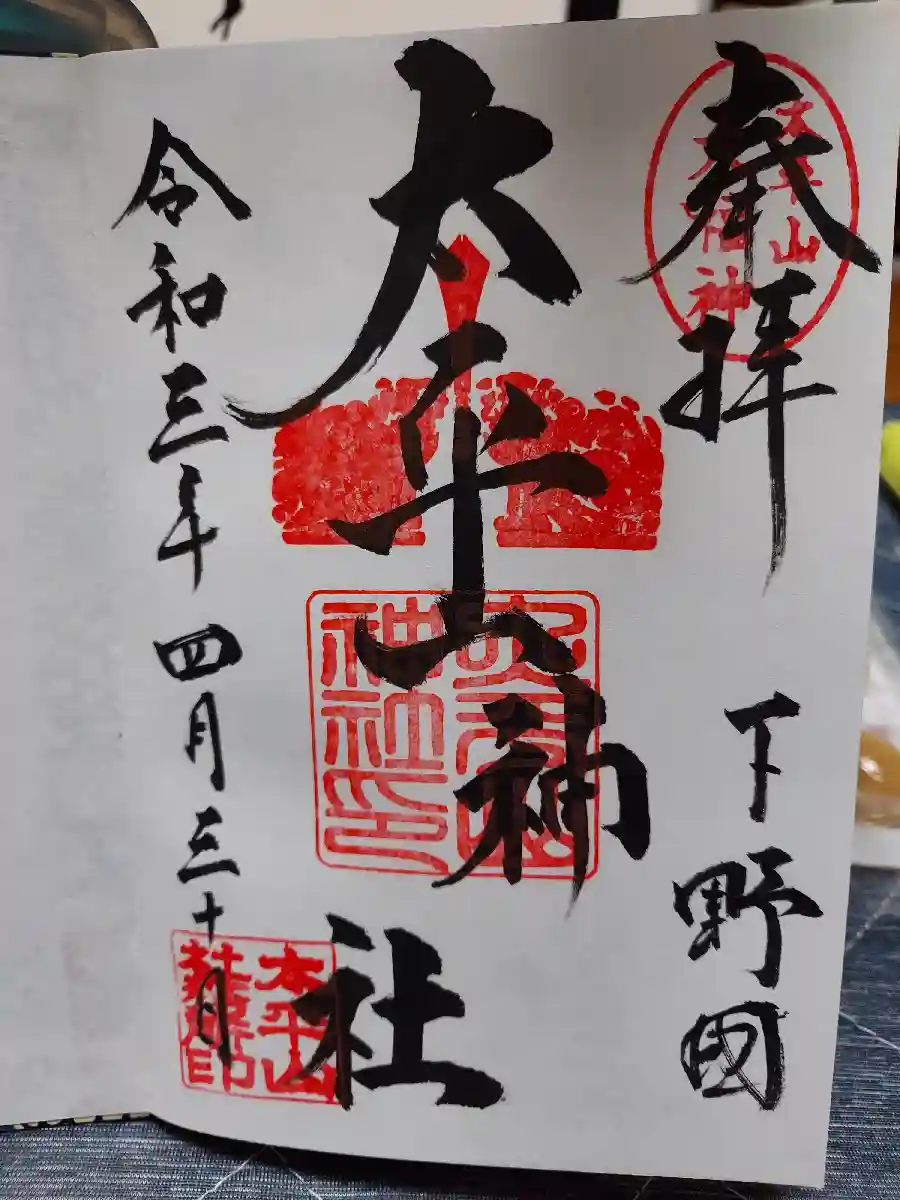 奉拝
下野國
太平山神社
令和三年四月三十日
太平山
太平山
神社印
太平山
社務所印